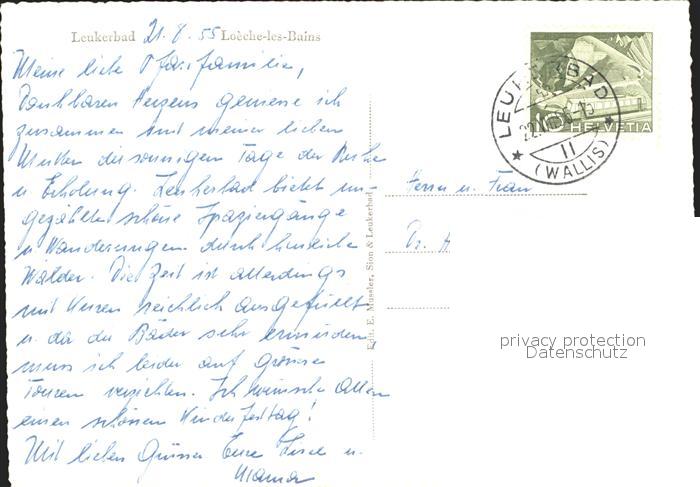 Leukerbad 21. 8. 55 Loèche-les-Bains
Meine liebe Pfarrfamilie,
Dankbaren Herzens geniesse ich
zusammen mit meiner lieben
Mutter die sonnigen Tage der Ruhe
u. Erholung. Leukerbad bietet un-
gezählte schöne Spaziergänge
u. Wanderungen durch
Wälder. Die Zeit ist allerdings
mit Kuren reichlich ausgefüllt
u. da die Bäder sehr ermüden,
muss ich leider auf grössere
Touren verzichten. Ich wünsche allen
einen schönen Kinderfesttag!
Mit lieben Grüssen Eure u.
Mama
Edit. E. Mussler, Sion & Leukerbad
10 HELVETIA
LEUKERBAD
11
(WALLIS)
Herrn u. Frau
Dr. A
privacy protection
Datenschutz